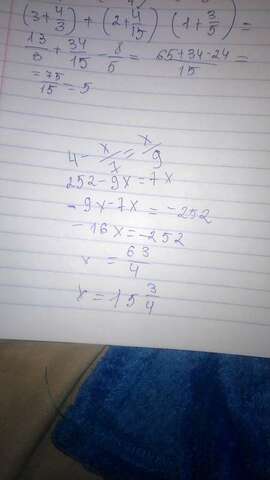 (3+4/3) + (2+4/15) (1+3/5) =
13/3 + 34/15 - 8/5 = 65+34-24/15 =
= 75/15 = 5
4 - x/7 = x/9
252 - 9x = 7x
-9x - 7x = -252
-16x = -252
x = 63/4
x = 15 3/4